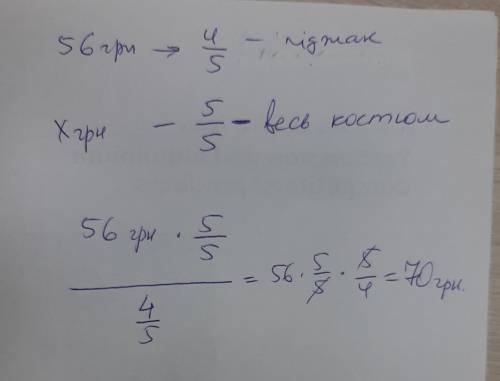 56 грн → 4/5 – піджак
X грн – 5/5 – весь костюм
56 грн · 5/5 / 4/5 = 56 · 5/5 · 5/4 = 70 грн.